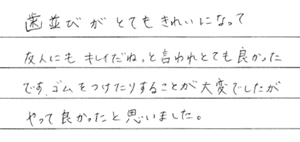 歯並びがとてもきれいになって
友人にもキレイだね。と言われとても良かった
です。ゴムをつけたりすることが大変でしたが
やって良かったと思いました。